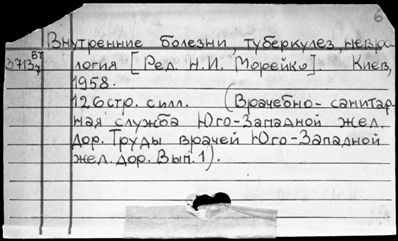 6
Внутренние болезни, туберкулез, невро-
логия [Ред. Н.И. Морейко]. Киев,
1958.
126 стр. с илл. (Врачебно-санитар-
ная служба Юго-Западной жел.
дор. Труды врачей Юго-Западной
жел. дор. Вып. 1).